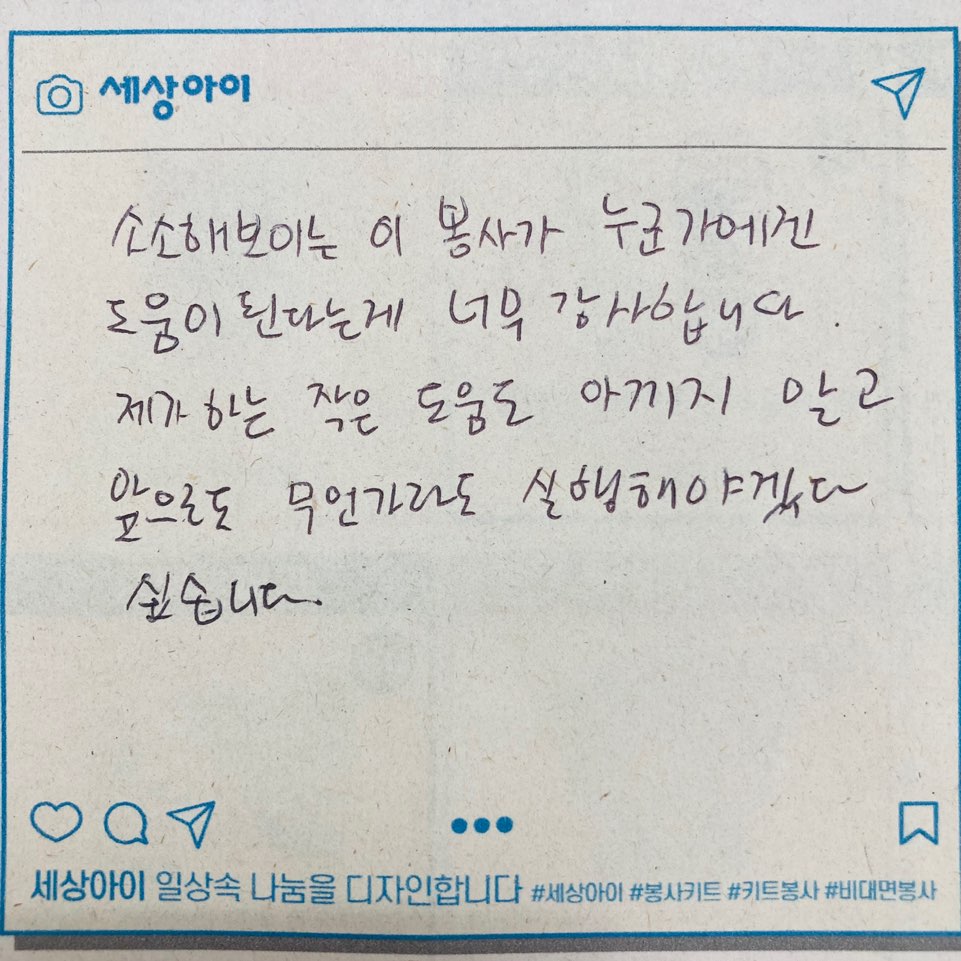 세상아이
소소해보이는 이 봉사가 누군가에겐
도움이 된다는게 너무 감사합니다.
제가 하는 작은 도움도 아끼지 말고
앞으로도 무언가라도 실행해야겠다
싶습니다.
세상아이 일상속 나눔을 디자인합니다 #세상아이 #봉사키트 #키트봉사 #비대면봉사